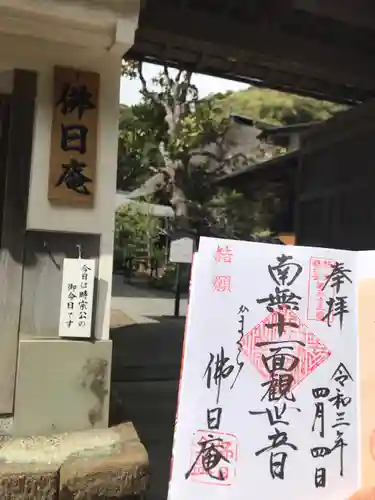 佛日庵
今日は時宗公
御命日です
奉拝
令和三年
四月四日
南無十一面観世音
結願
かまくら
佛日庵